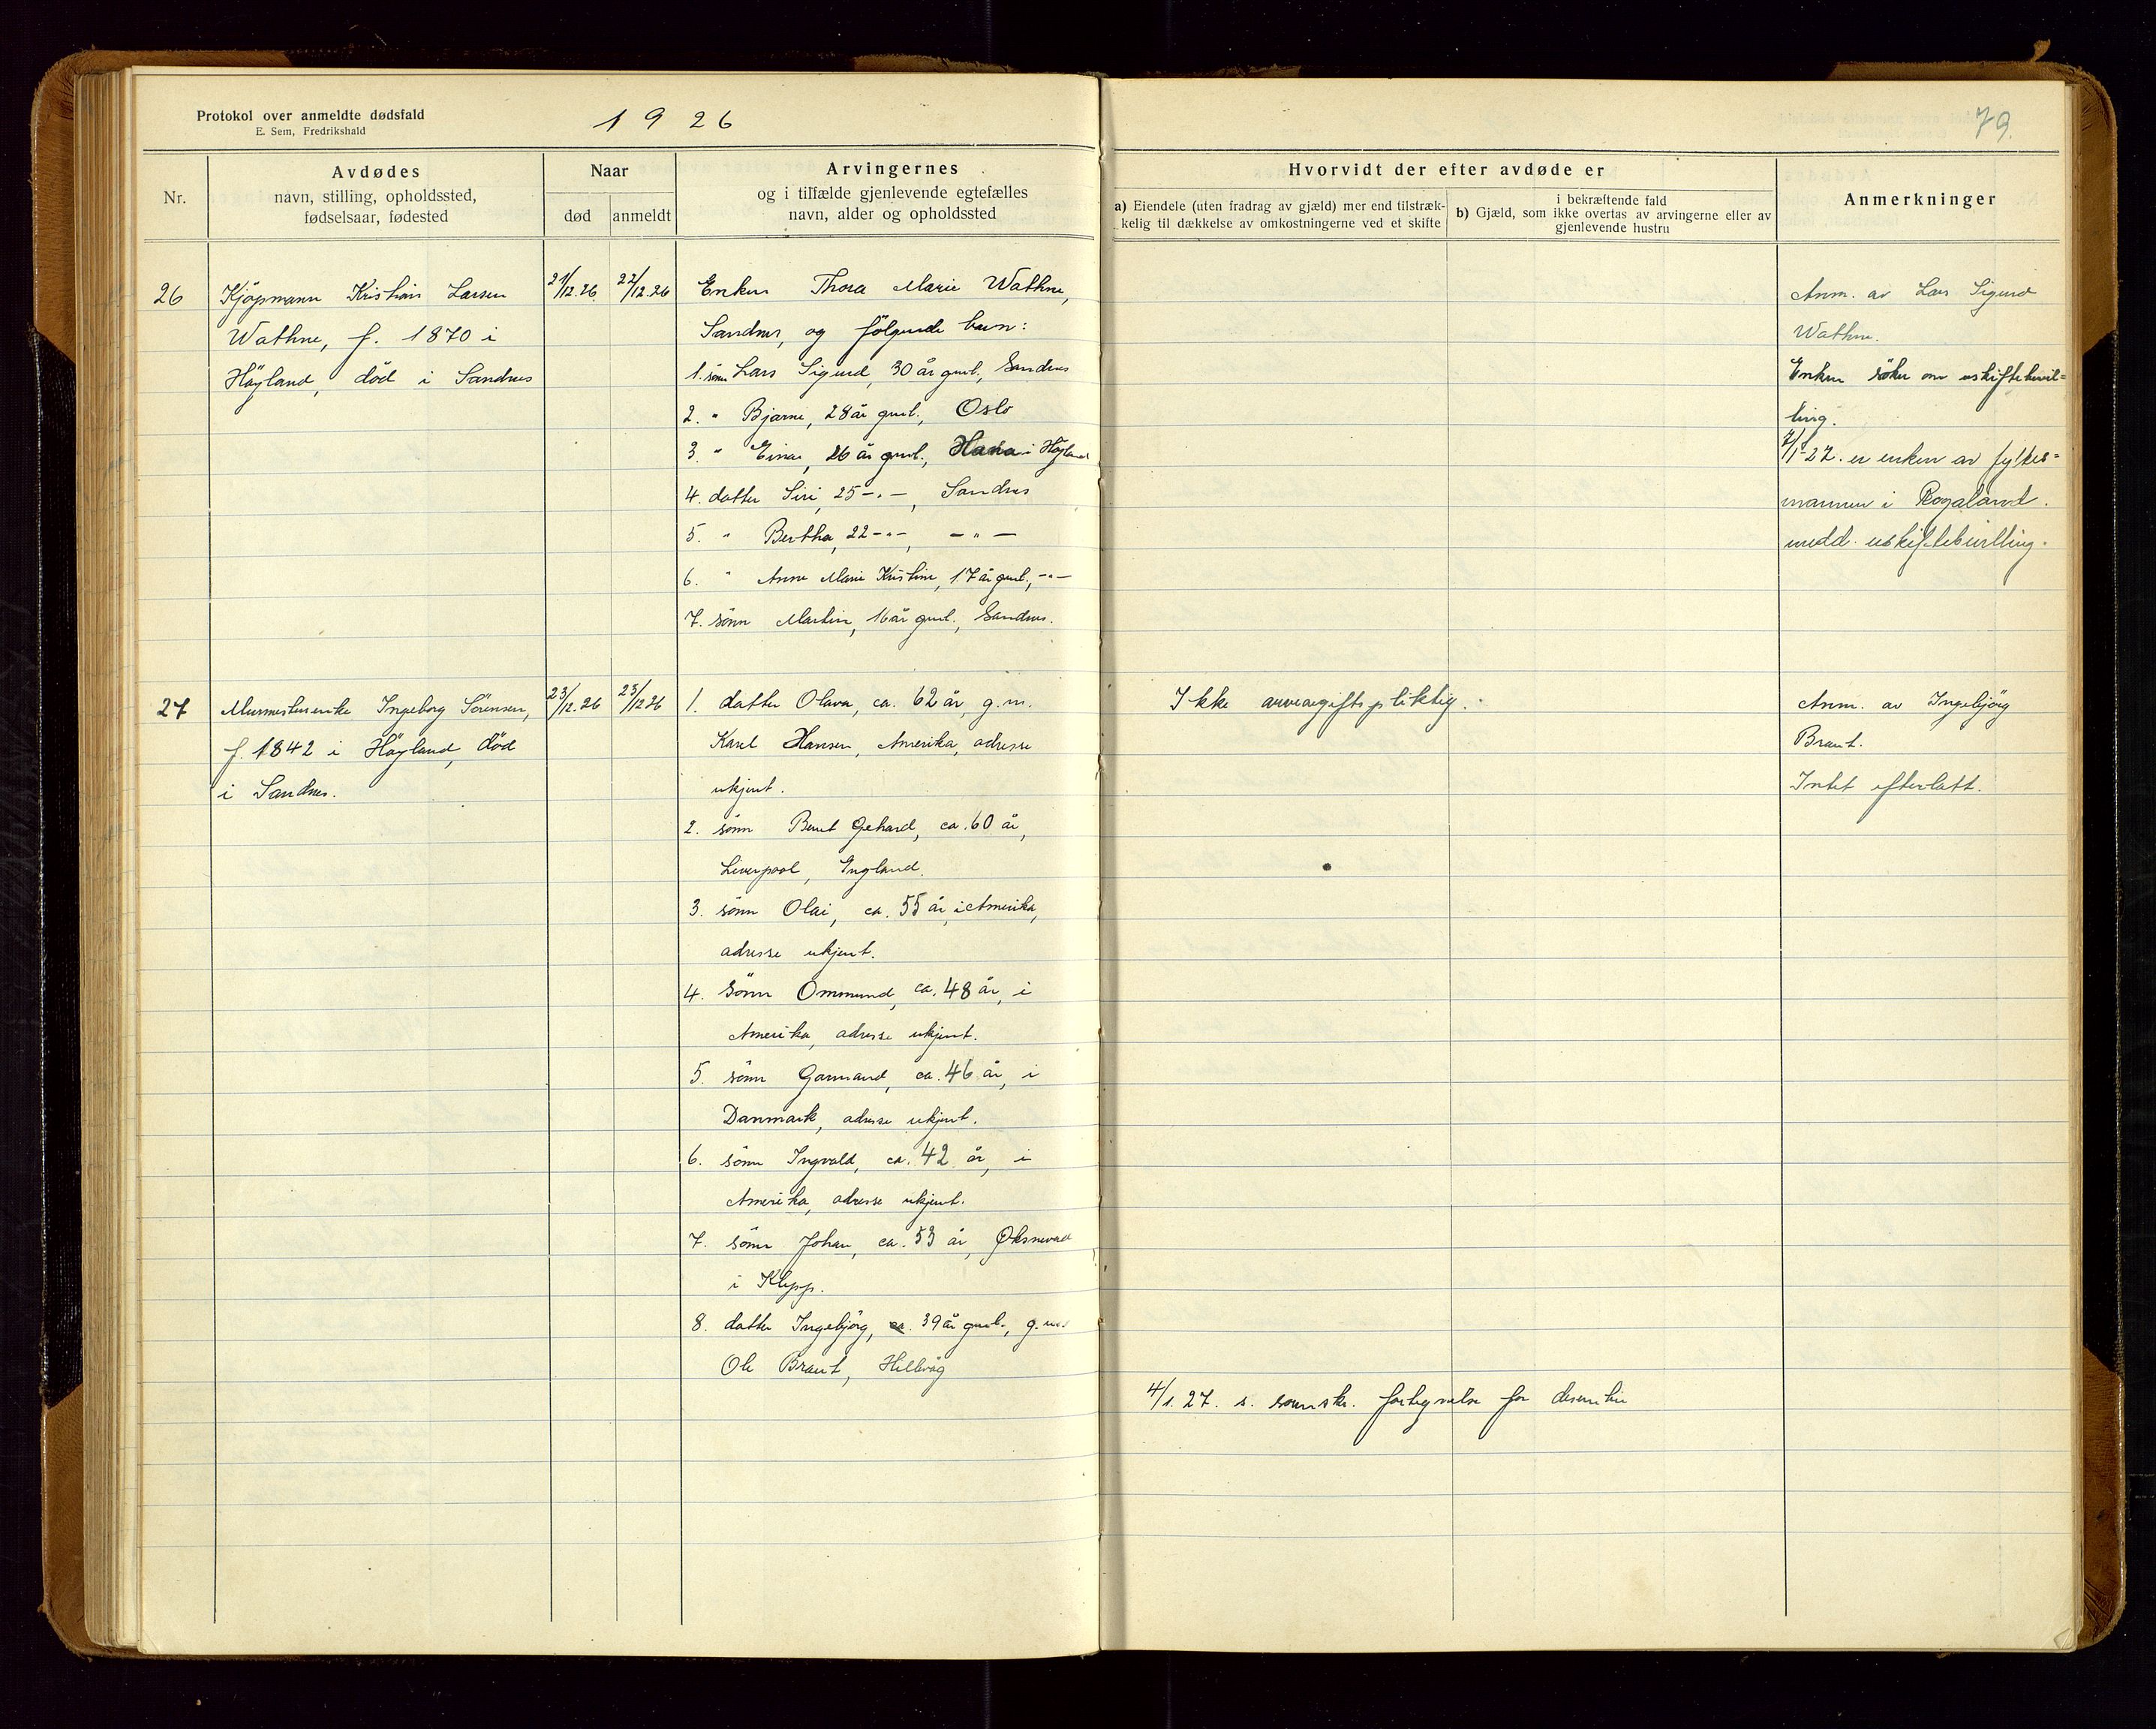 Protokol over anmeldte dødsfald
E. Sem, Fredrikshald
1926
79.
Nr.
Avdødes
navn, stilling, opholdssted,
fødselsaar, fødested
Naar
død
anmeldt
Arvingernes
og i tilfælde gjenlevende egtefælles
navn, alder og opholdssted
Hvorvidt der efter avdøde er
a) Eiendele (uten fradrag av gjæld) mer end tilstræk-
kelig til dækkelse av omkostningerne ved et skifte
i bekræftende fald
b) Gjæld, som ikke overtas av arvingerne eller av
gjenlevende hustru
Anmerkninger
26
Kjöpmann Kristian Larsen
Wathne, f. 1870 i
Höyland, död i Sandnes
21/12.26
22/12.26
Enken Thora Marie Wathne,
Sandnes, og följende barn:
1. sönn Lars Sigurd, 30 år gml., Sandnes
2. " Bjarne, 28 år gml., Oslo
3. " Einar, 26 år gml., Hana i Höyland
4. datter Siri, 25 -"-, Sandnes
5. " Bertha, 22 -"-, -"-
6. " Anne Marie Kristine, 17 år gml., -"-
7. sönn Martin, 16 år gml., Sandnes.
Anm. av Lars Sigurd
Wathne.
Enken söker om uskiftebevil=
ling.
7/1-27. er enken av fylkes=
mannen i Rogaland.
medd. uskiftebevilling.
27
Murmesterenke Ingeborg Sörensen,
f. 1842 i Höyland, död
i Sandnes.
23/12.26
23/12 26
1. datter Olava, ca. 62 år, g.m.
Karl Hansen, Amerika, adresse
ukjent.
2. sönn Bernt Gehard, ca. 60 år,
Liverpool, England.
3. sönn Olai, ca. 55 år, i Amerika,
adresse ukjent.
4. sönn Ommund, ca. 48 år, i
Amerika, adresse ukjent.
5. sönn Gannard, ca. 46 år, i
Danmark, adresse ukjent.
6. sönn Ingvald, ca. 42 år, i
Amerika, adresse ukjent.
7. sönn Johan, ca. 53 år, Øksnevad
i Klepp.
8. datter Ingebjörg, ca. 39 år gml., g.m.
Ole Braut, Hillevåg
Ikke arveavgiftspliktig.
Anm. av Ingebjörg
Braut.
Intet efterlatt.
4/1.27. s. innskr. fortegnelse for desember